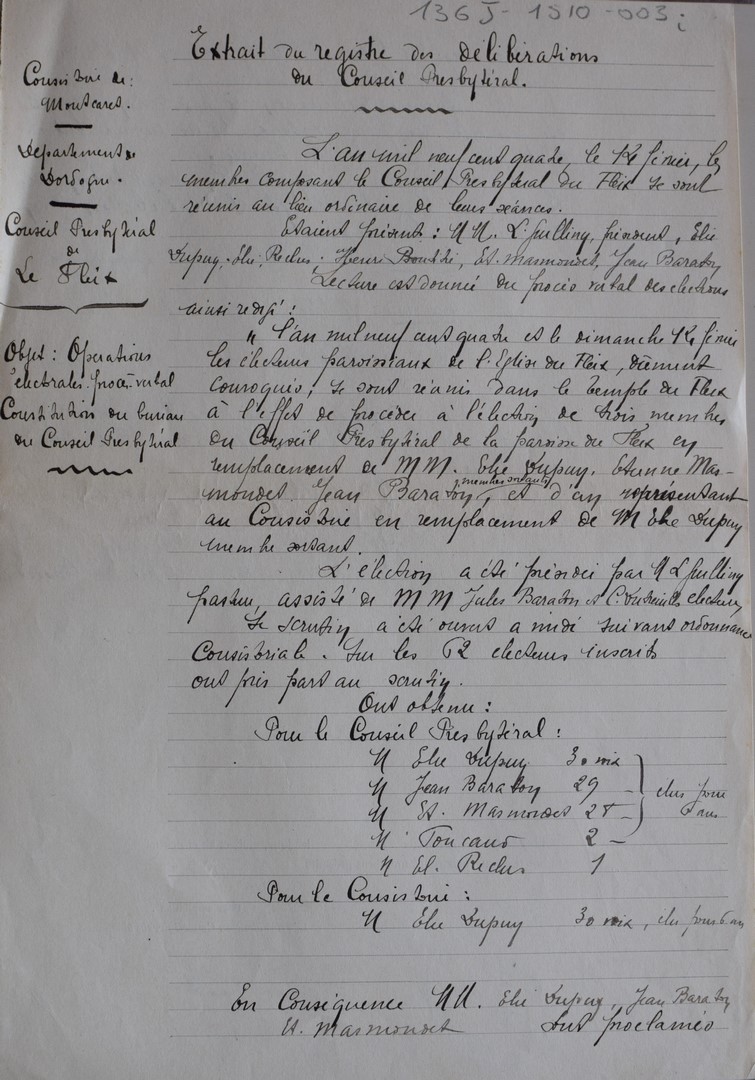 136 J - 1910 - 003 i
Extrait du registre des délibérations
du Conseil Presbytéral.
Consistoire de:
Montcaret.
Département de
Dordogne.
Conseil Presbytéral
de
Le Fleix
Objet: Opérations
électorales. procès-verbal
Constitution du bureau
du Conseil Presbytéral
L'an mil neuf cent quatre, le 14 février, les
membres composant le Conseil Presbytéral du Fleix se sont
réunis au lieu ordinaire de leurs séances.
Etaient présent: MM. L. Guilliny, président, Elie
Dupuy, Elie Reclus, Henri, Et. Masmondet, Jean Baraton
Lecture est donnée du procès verbal des élections
ainsi redigé:
" L'an mil neuf cent quatre et le dimanche 14 février
les électeurs paroissiaux de l'Eglise du Fleix, dûment
convoqués, se sont réunis dans le temple du Fleix
à l'effet de procéder à l'élection de trois membres
du Conseil Presbytéral de la paroisse du Fleix en
remplacement de MM. Elie Dupuy. Etienne Mas-
mondet. Jean Baraton, membres sortants, et d'un représentant
au Consistoire en remplacement de M Elie Dupuy
membre sortant.
L'élection a été présidée par M L Guilliny
pasteur, assisté de MM Jules Baraton et C. électeurs,
Le scrutin a été ouvert a midi suivant ordonnance
Consistoriale. Sur les 62 électeurs inscrits
ont pris part au scrutin.
Ont obtenu:
Pour le Conseil Presbytéral:
M Elie Dupuy 30 voix
M Jean Baraton 29 -
M Et. Masmondet 28 -
élus pour
6 ans
M Toucaud 2 -
M El. Reclus 1
Pour le Consistoire:
M Elie Dupuy 30 voix, élu pour 6 ans
En Conséquence MM. Elie Dupuy, Jean Baraton
Et. Masmondet sont proclamés